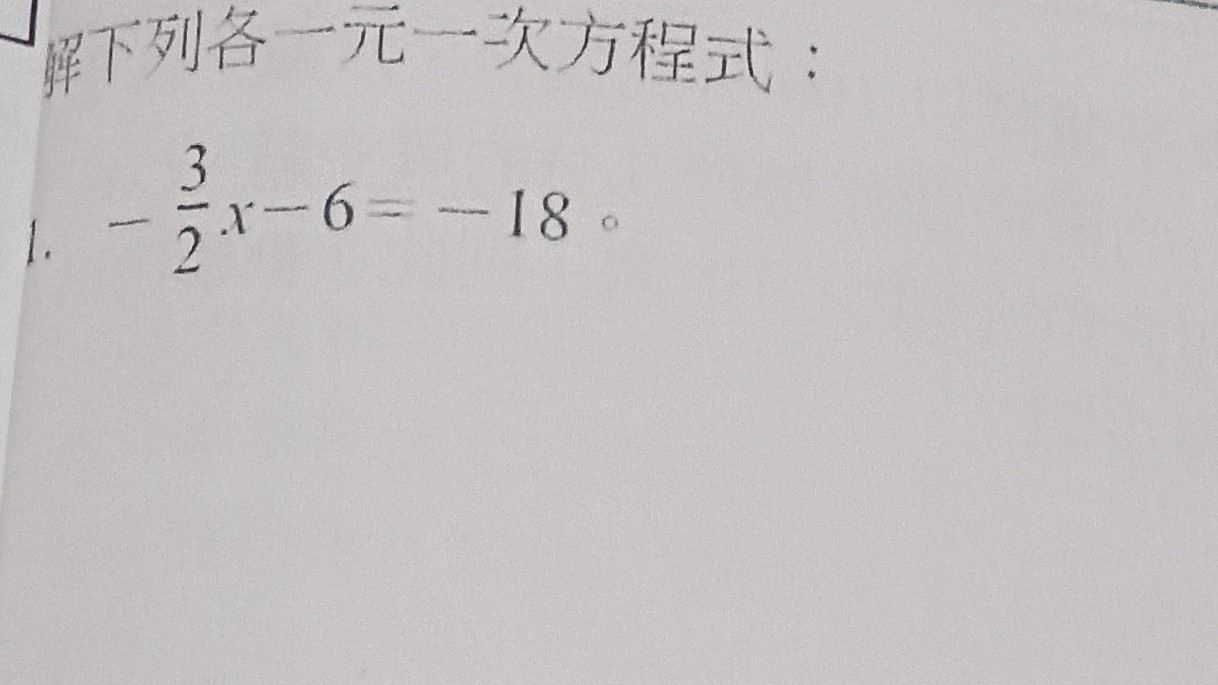 解下列各一元一次方程式：
1. －3/2 x－6＝－18。